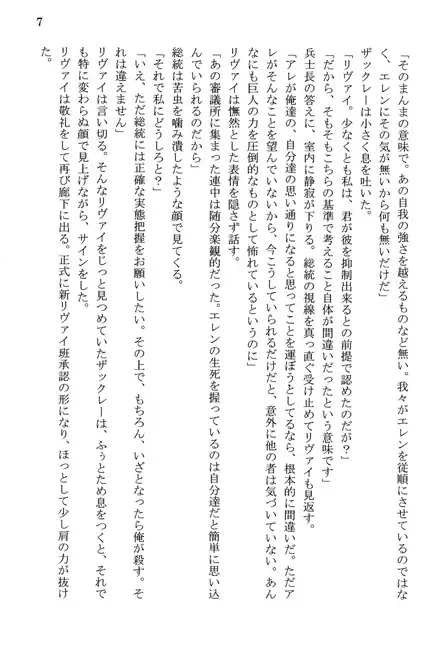 7
「そのまんまの意味で。あの自我の強さを越えるものなど無い。我々がエレンを従順にさせているのではな
く、エレンにその気が無いから何も無いだけだ」
ザックレーは小さく息を吐いた。
「リヴァイ。少なくとも私は、君が彼を抑制出来るとの前提で認めたのだが?」
「だから、そもそもこちらの基準で考えること自体が間違いだったという意味です」
兵士長の答えに、室内に静寂が下りる。総統の視線を真っ直ぐ受け止めてリヴァイも見返す。
「アレが俺達の、自分達の思い通りになると思ってことを運ぼうとしてるなら、根本的に間違いだ。ただア
レがそんなことを望んでいないから、今こうしていられるだけだと、意外に他の者は気づいていない。あん
なにも巨人の力を圧倒的なものとして怖れているというのに」
リヴァイは憮然とした表情を隠さず話す。
「あの審議所に集まった連中は随分楽観的だった。エレンの生死を握っているのは自分達だと簡単に思い込
んでいられるのだから」
総統は苦虫を噛み潰したような顔で見てくる。
「それで私にどうしろと?」
「いえ、ただ総統には正確な実態把握をお願いしたい。その上で、もちろん、いざとなったら俺が殺す。そ
れは違えません」
リヴァイは言い切る。そんなリヴァイをじっと見つめていたザックレーは、ふぅとため息をつくと、それで
も特に変わらぬ顔で見上げながら、サインをした。
リヴァイは敬礼をして再び廊下に出る。正式に新リヴァイ班承認の形になり、ほっとして少し肩の力が抜け
た。